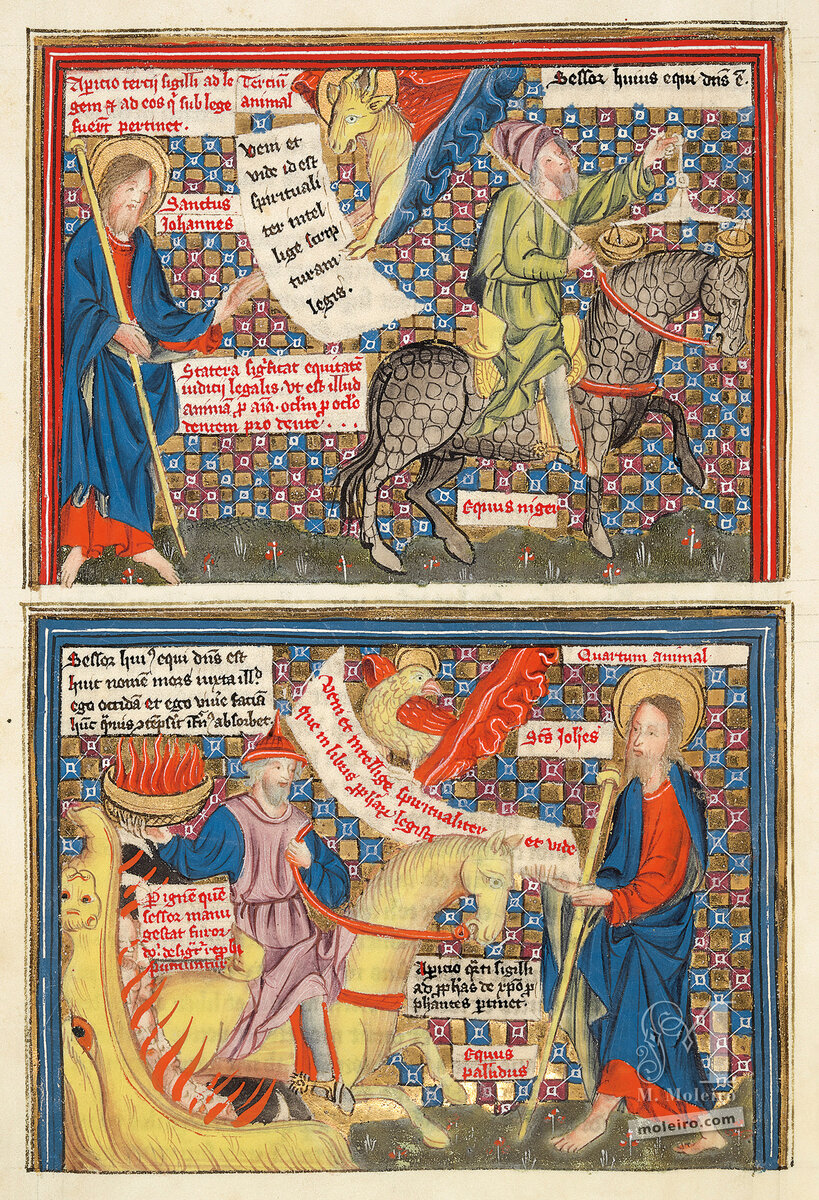 Apicio tercij sigilli ad le
gem & ad eos q̄ sub lege
fuer̄t pertinet.
Terciū
animal
Sessor huius equi dn̄s ē.
veni et
vide id est
spirituali
ter intel
lige scrip
turam
legis.
Sanctus
Johannes
Statera sig͛ficat equitatē
iudicij legalis. vt est illud
animā p̄ aīa. oclm̄ p̄ oclo
dentem pro dente
Equus niger
Sessor huiꝰ equi dn̄s est
huic nomē mors iuxta illḋ
ego occidā et ego viue͛ faciā
Quartum animal
veni et intellige spiritualiter et vide
que in libris legis
Sc̄s Joh̄es
P ignē quē
sessor manu
gestat furor
puniuntur
Apicio q̄rti sigilli
ad
phantes p̄tinet.
Equus
pallidus
M. Moleiro
moleiro.com